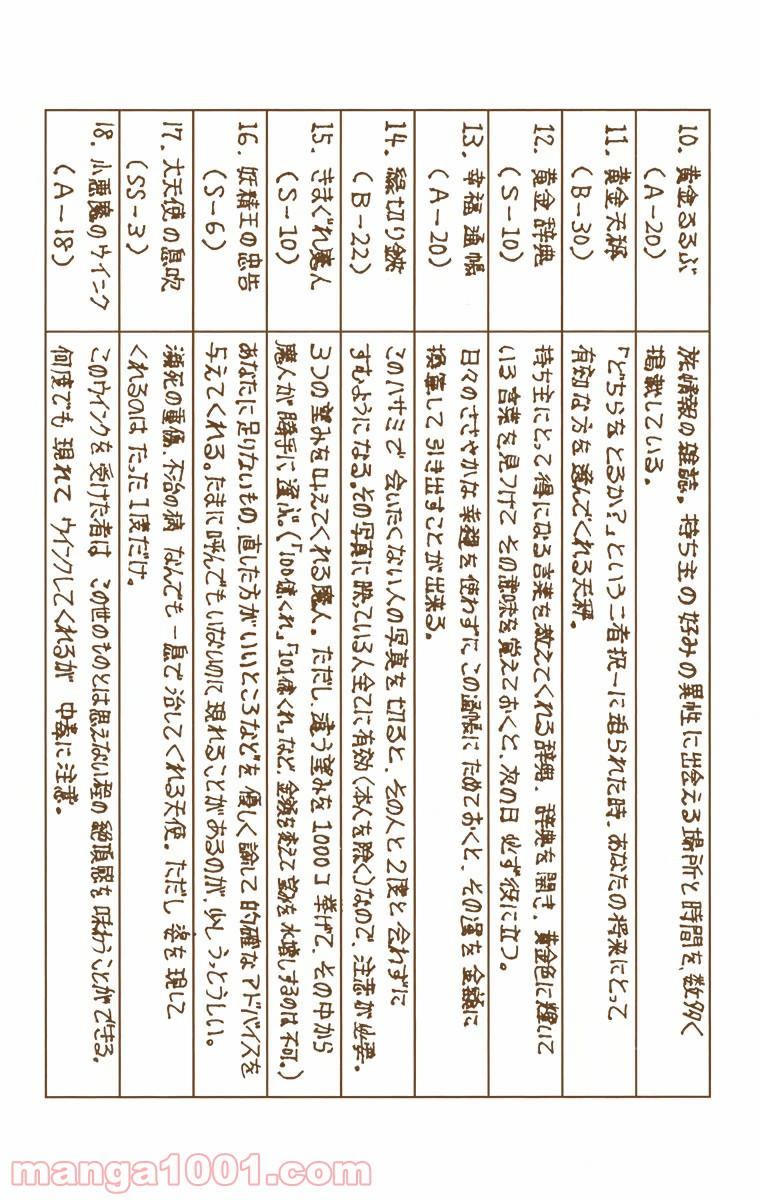 10. 黄金るるぶ
(A-20)
旅情報の雑誌。持ち主の好みの異性に出会える場所と時間を、数多く
掲載している。
11. 黄金天秤
(B-30)
「どちらをとるか?」という二者択一に迫られた時、あなたの将来にとって
有効な方を選んでくれる天秤。
12. 黄金辞典
(S-10)
持ち主にとって得になる言葉を教えてくれる辞典。辞典を開き、黄金色に輝いて
いる言葉を見つけて その意味を覚えておくと、次の日 必ず役に立つ。
13. 幸福通帳
(A-20)
日々のささやかな幸福を使わずに この通帳に ためておくと、その運を金額に
換算して引き出すことが出来る。
14. 縁切り鋏
(B-22)
このハサミで 会いたくない人の写真を切ると、その人と2度と会わずに
すむようになる。その写真に映っている人全てに有効(本人を除く)なので、注意が必要。
15. きまぐれ魔人
(S-10)
3つの望みを叶えてくれる魔人。ただし、違う望みを1000コ挙げて、その中から
魔人が勝手に選ぶ。(「100億くれ」「101億くれ」など、金額を変えて望みを水増しするのは不可。)
16. 妖精王の忠告
(S-6)
あなたに足りないもの、直した方がいいところなどを優しく諭して 的確なアドバイスを
与えてくれる。たまに呼んでもいないのに現れることがあるのが、少しうっとうしい。
17. 大天使の息吹
(SS-3)
瀕死の重傷、不治の病 なんでも一息で治してくれる天使。ただし 姿を現して
くれるのは たった1度だけ。
18. 小悪魔のウインク
(A-18)
このウインクを受けた者は この世のものとは思えない程の絶頂感を味わうことができる。
何度でも 現れて ウインクしてくれるが 中毒に注意。
manga1001.com